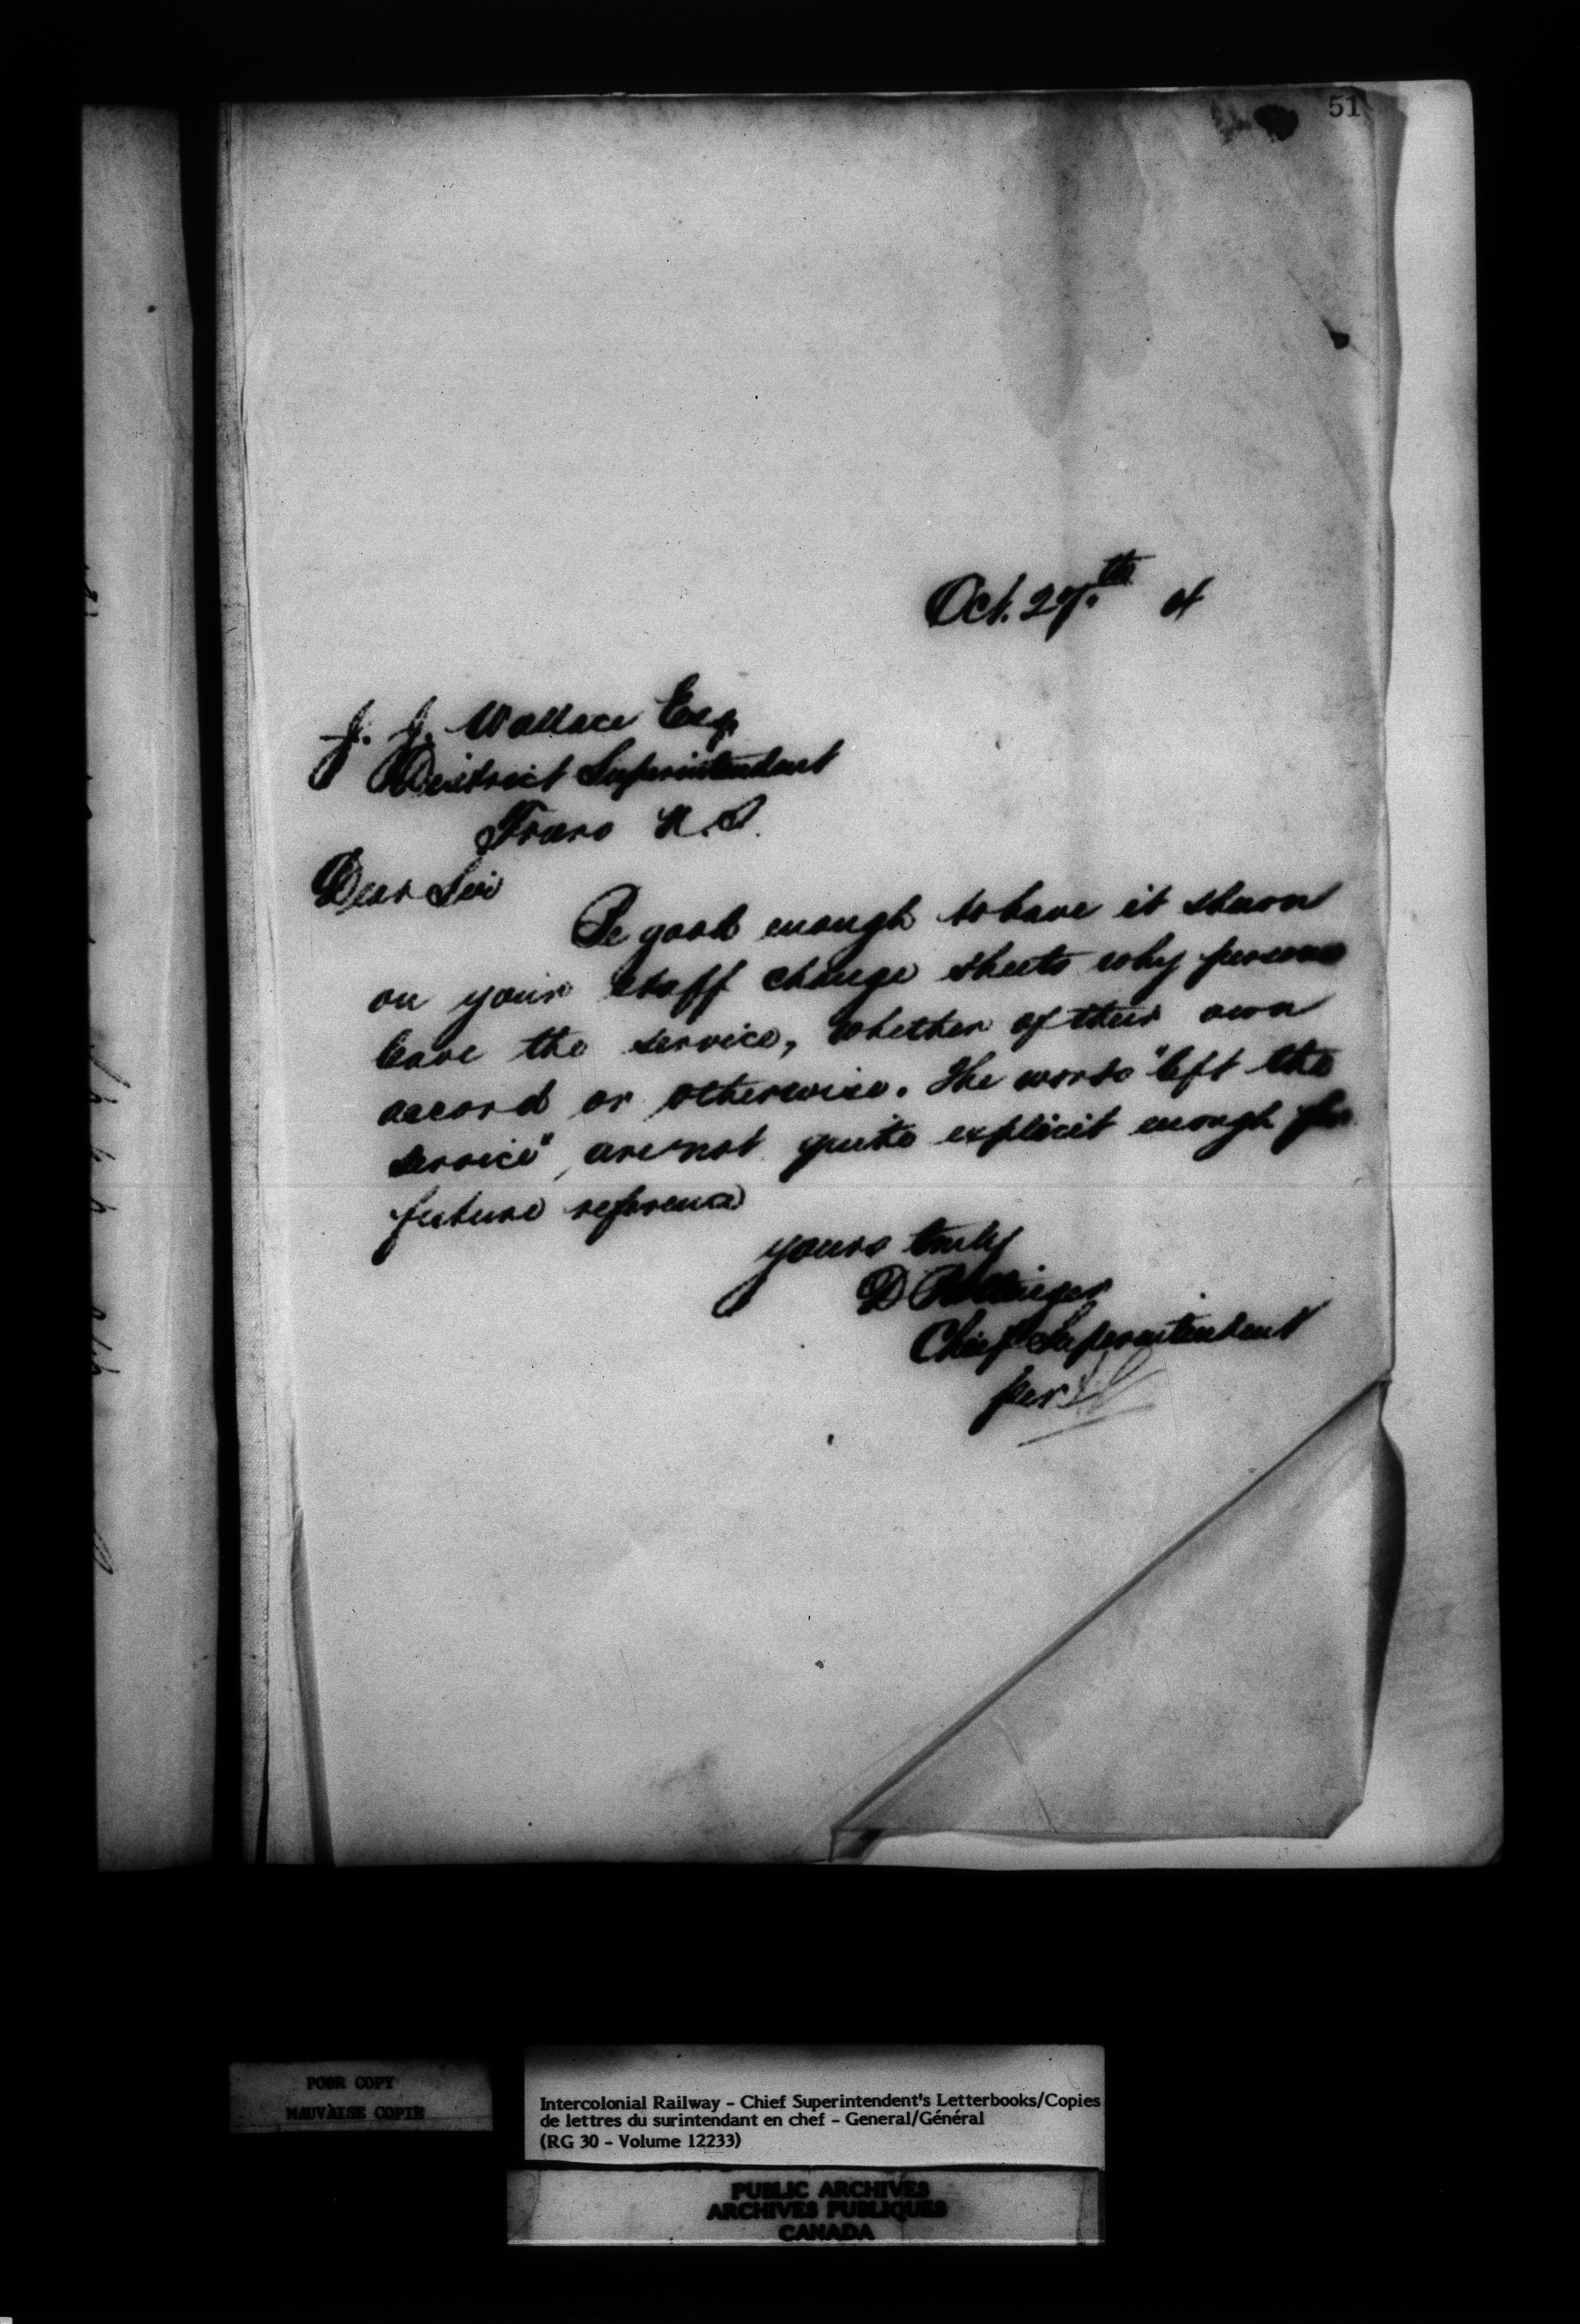 51
Oct. 27th
J. J. Wallace Esq
District Superintendent
Truro N.S.
Dear Sir
Be good enough to have it shown
on your staff change sheets why persons
leave the service, whether of their own
accord or otherwise. The words "left the
service" are not quite explicit enough for
future reference
yours truly
D Pottinger
Chief Superintendent
per
POOR COPY
MAUVAISE COPIE
Intercolonial Railway - Chief Superintendent's Letterbooks/Copies
de lettres du surintendant en chef - General/Général
(RG 30 - Volume 12233)
PUBLIC ARCHIVES
ARCHIVES PUBLIQUES
CANADA